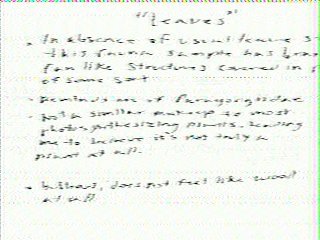 "Leaves"
- In absence of usual leaves
this fauna sample has
fan like structures covered in
of some sort
- Reminds me of
- Not a similar makeup to most
photosynthesizing plants, leading
me to believe it's not truly a
plant at all.
- does not feel like wood
at all